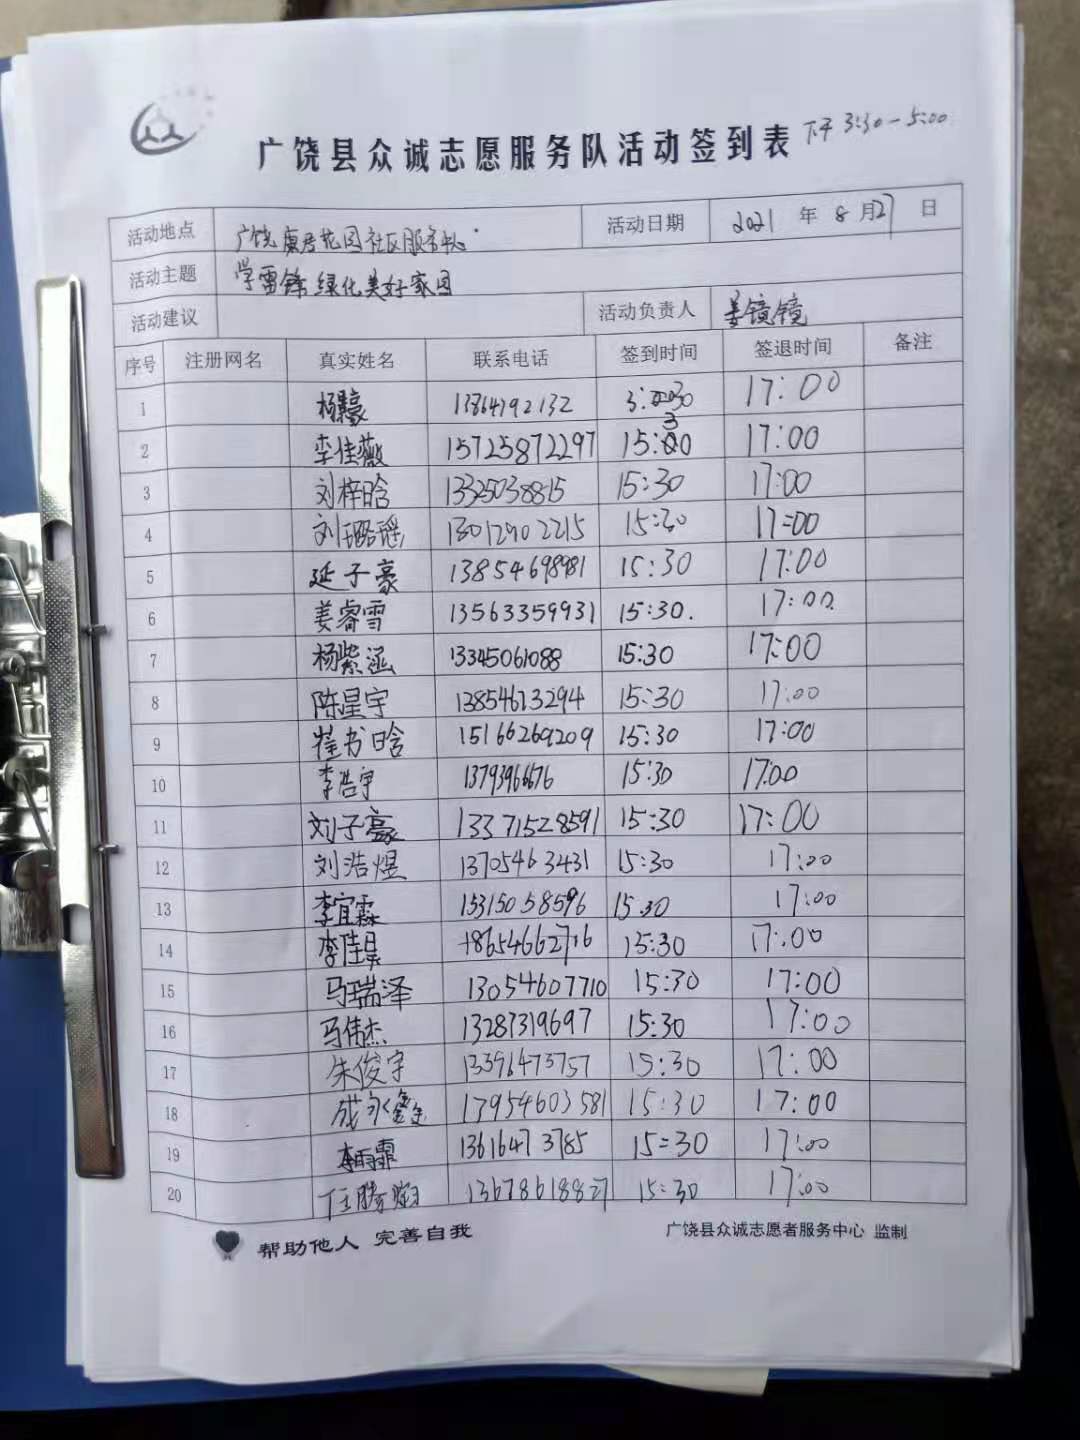 广饶县众诚志愿服务队活动签到表 下午 3:30-5:00
活动地点 广饶康居花园社区服务中心 活动日期 2021 年 8 月 27 日
活动主题 学雷锋 绿化美好家园
活动建议 活动负责人 姜镜镜
序号 注册网名 真实姓名 联系电话 签到时间 签退时间 备注
1 13864792132 17:00
2 李佳薇 15725872297 15:30 17:00
3 刘梓晗 13325038815 15:30 17:00
4 刘璐瑶 13012902215 15:30 17:00
5 延子豪 13854698981 15:30 17:00
6 姜睿雪 13563359931 15:30. 17:00.
7 杨紫涵 13345061088 15:30 17:00
8 陈星宇 13854613294 15:30 17:00
9 书晗 15166269209 15:30 17:00
10 李浩宇 13793966676 15:30 17:00
11 刘子豪 13371528591 15:30 17:00
12 刘浩煜 13705463431 15:30 17:00
13 李宜霖 15315058596 15:30 17:00
14 李佳昊 18654662716 15:30 17:00
15 马瑞泽 13054607710 15:30 17:00
16 马伟杰 13287319697 15:30 17:00
17 朱俊宇 13396473757 15:30 17:00
18 成永鑫 13954603581 15:30 17:00
19 李雨霏 13616473785 15:30 17:00
20 任腾 15:30 17:00
帮助他人 完善自我 广饶县众诚志愿者服务中心 监制